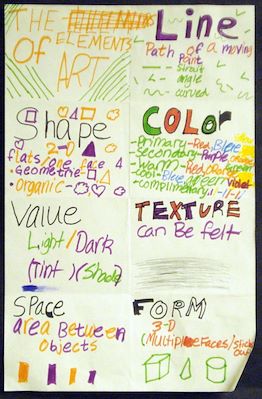 THE
ELEMENTS
Of
ART
Line
Path of a moving
Point
strait
angle
curved
Shape
2-D
flats/one face
Geometric
organic
COLOR
Primary-Red, Blue,
Secondary-Purple,
Warm-Red,
Cool-Blue, green, violet
Value
Light/Dark
(tint)(Shade)
TEXTURE
can Be felt
SPace
area Between
objects
FORM
3-D